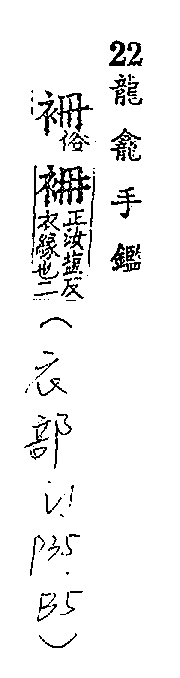 22龍龕手鑑
俗袡正汝鹽反衣緣也二（衣部 P35. B5）